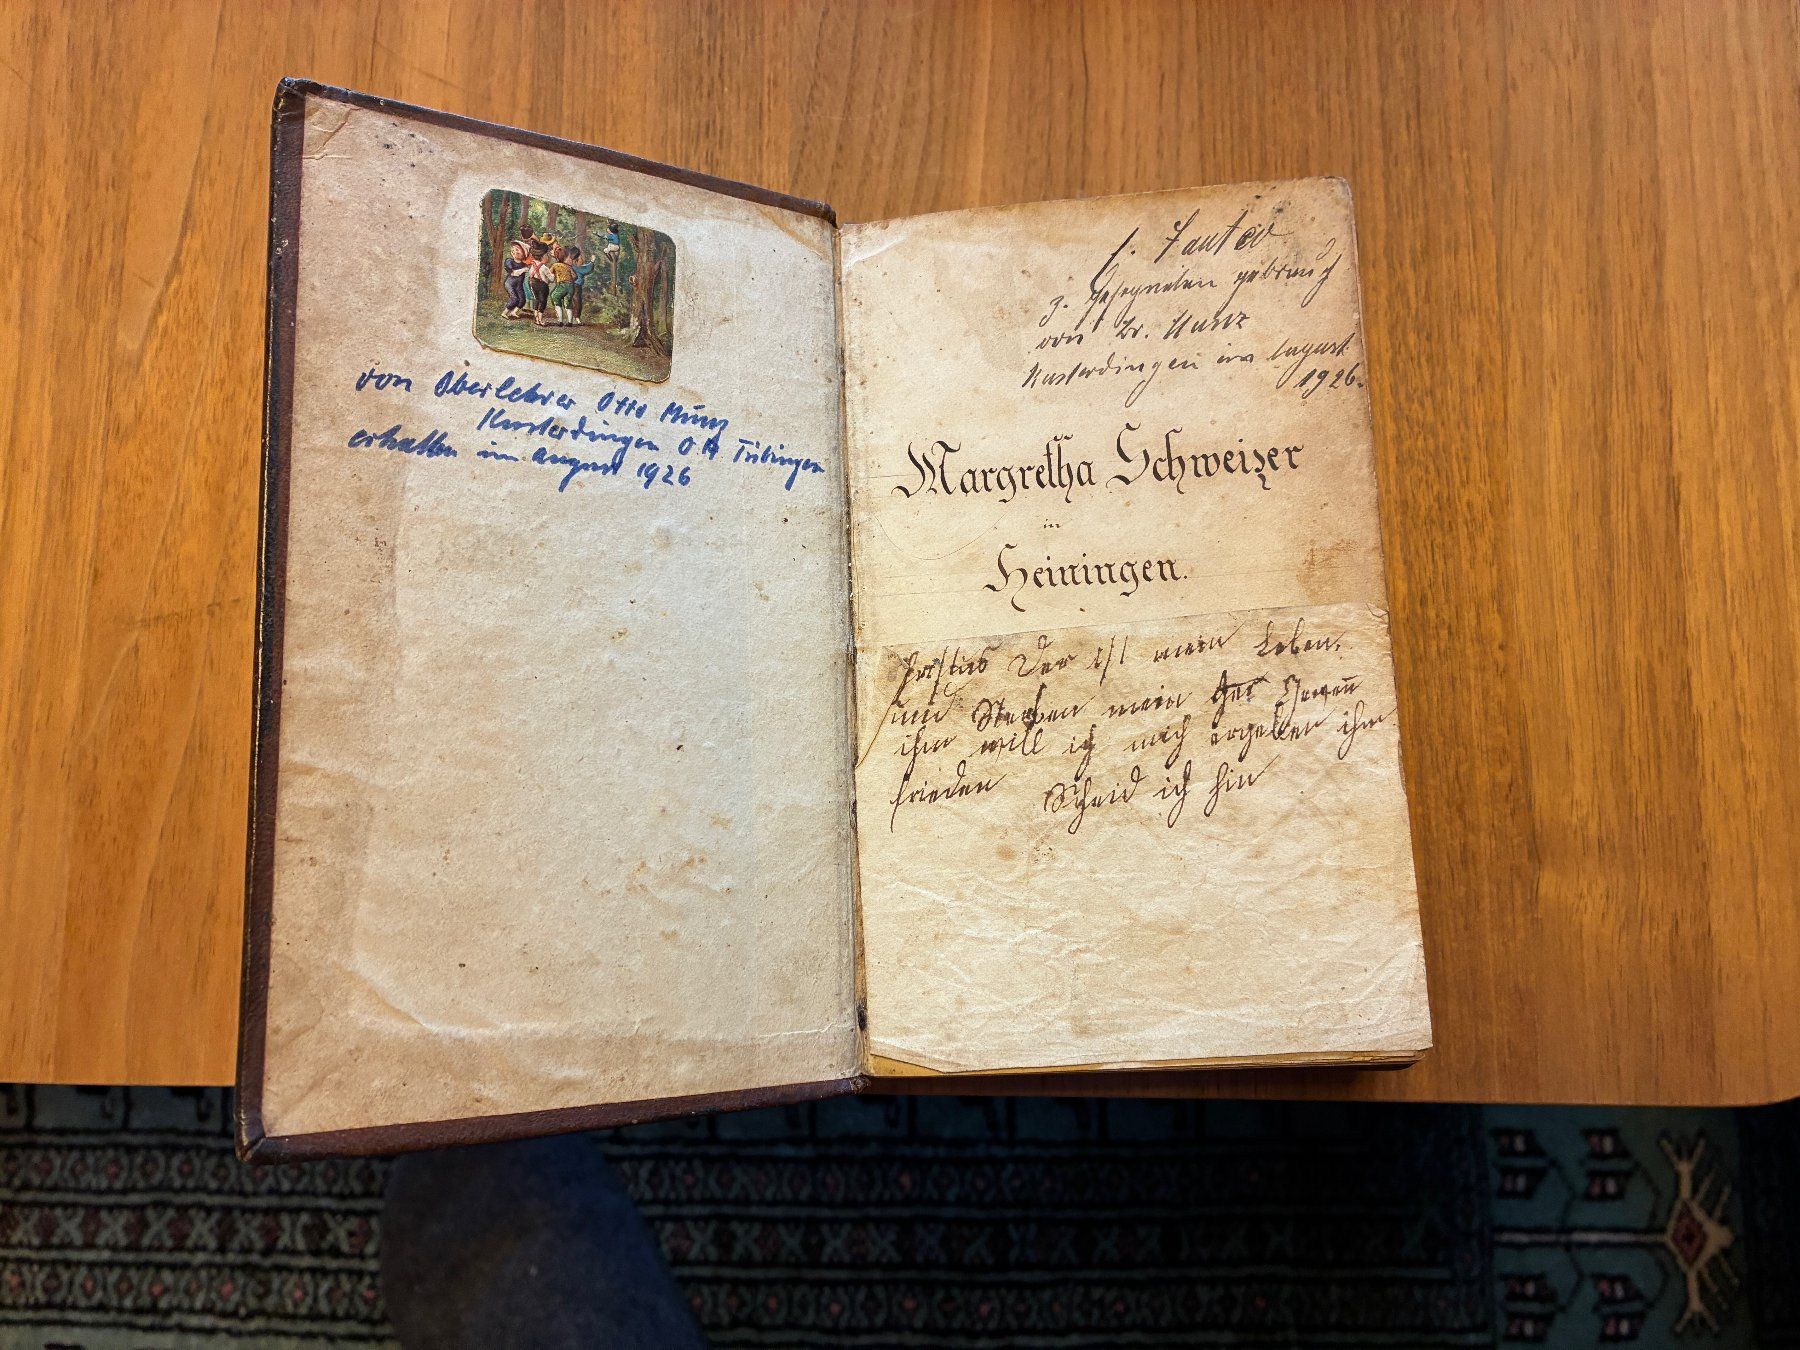 von Oberlehrer Otto Munz
Kusterdingen OA Tübingen
erhalten im August 1926
z. gesegneten gebrauch
von Br. Munz
Kusterdingen im August
1926.
Margretha Schweizer
in
Heiningen.
Christus Der ist mein Leben,
und Sterben mein
ihm will ich mich ergeben ihm
frieden Scheid ich hin